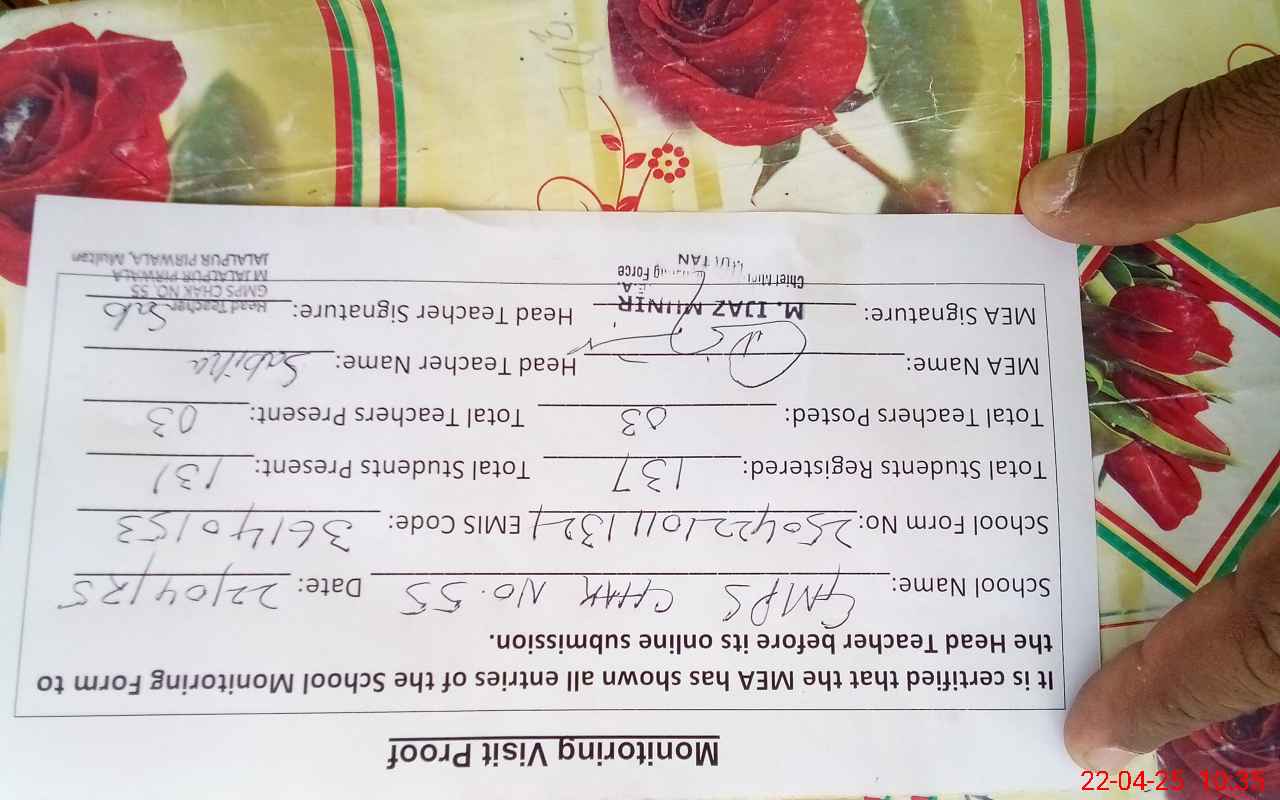 Monitoring Visit Proof
It is certified that the MEA has shown all entries of the School Monitoring Form to
the Head Teacher before its online submission.
School Name: GMPS CHAK NO. 55 Date: 22/04/25
School Form No: EMIS Code: 36140153
Total Students Registered: 137 Total Students Present: 131
Total Teachers Posted: 03 Total Teachers Present: 03
MEA Name: Head Teacher Name: Sabiha
MEA Signature: Head Teacher Signature:
M. IJAZ MUNIR
Chief Force
Head Teacher
GMPS CHAK NO. 55
M JALALPUR PIRWALA
JALALPUR PIRWALA, Multan
22-04-25 10:35